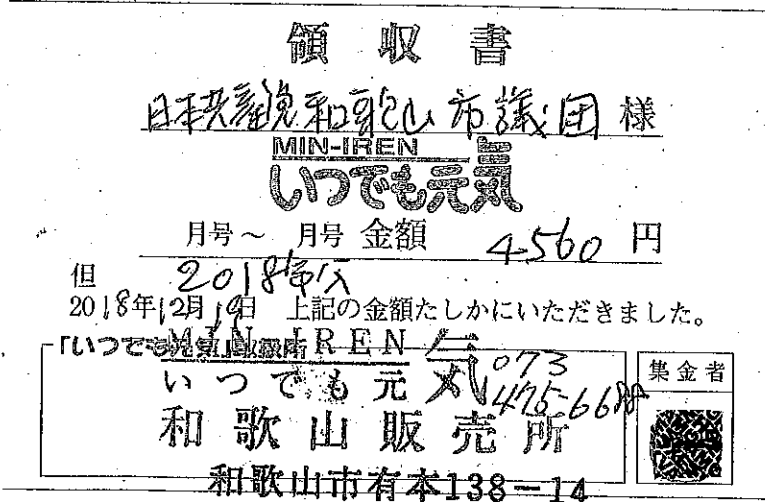 領収書
日本共産党和歌山市議団 様
MIN-IREN
いつでも元気
月号～ 月号 金額 4560 円
但 2018年分
2018年12月19日 上記の金額たしかにいただきました。
「いつでも元気」取扱所
MIN-IREN
いつでも元気
073
475-6688
集金者
和歌山販売所
和歌山市有本138-14